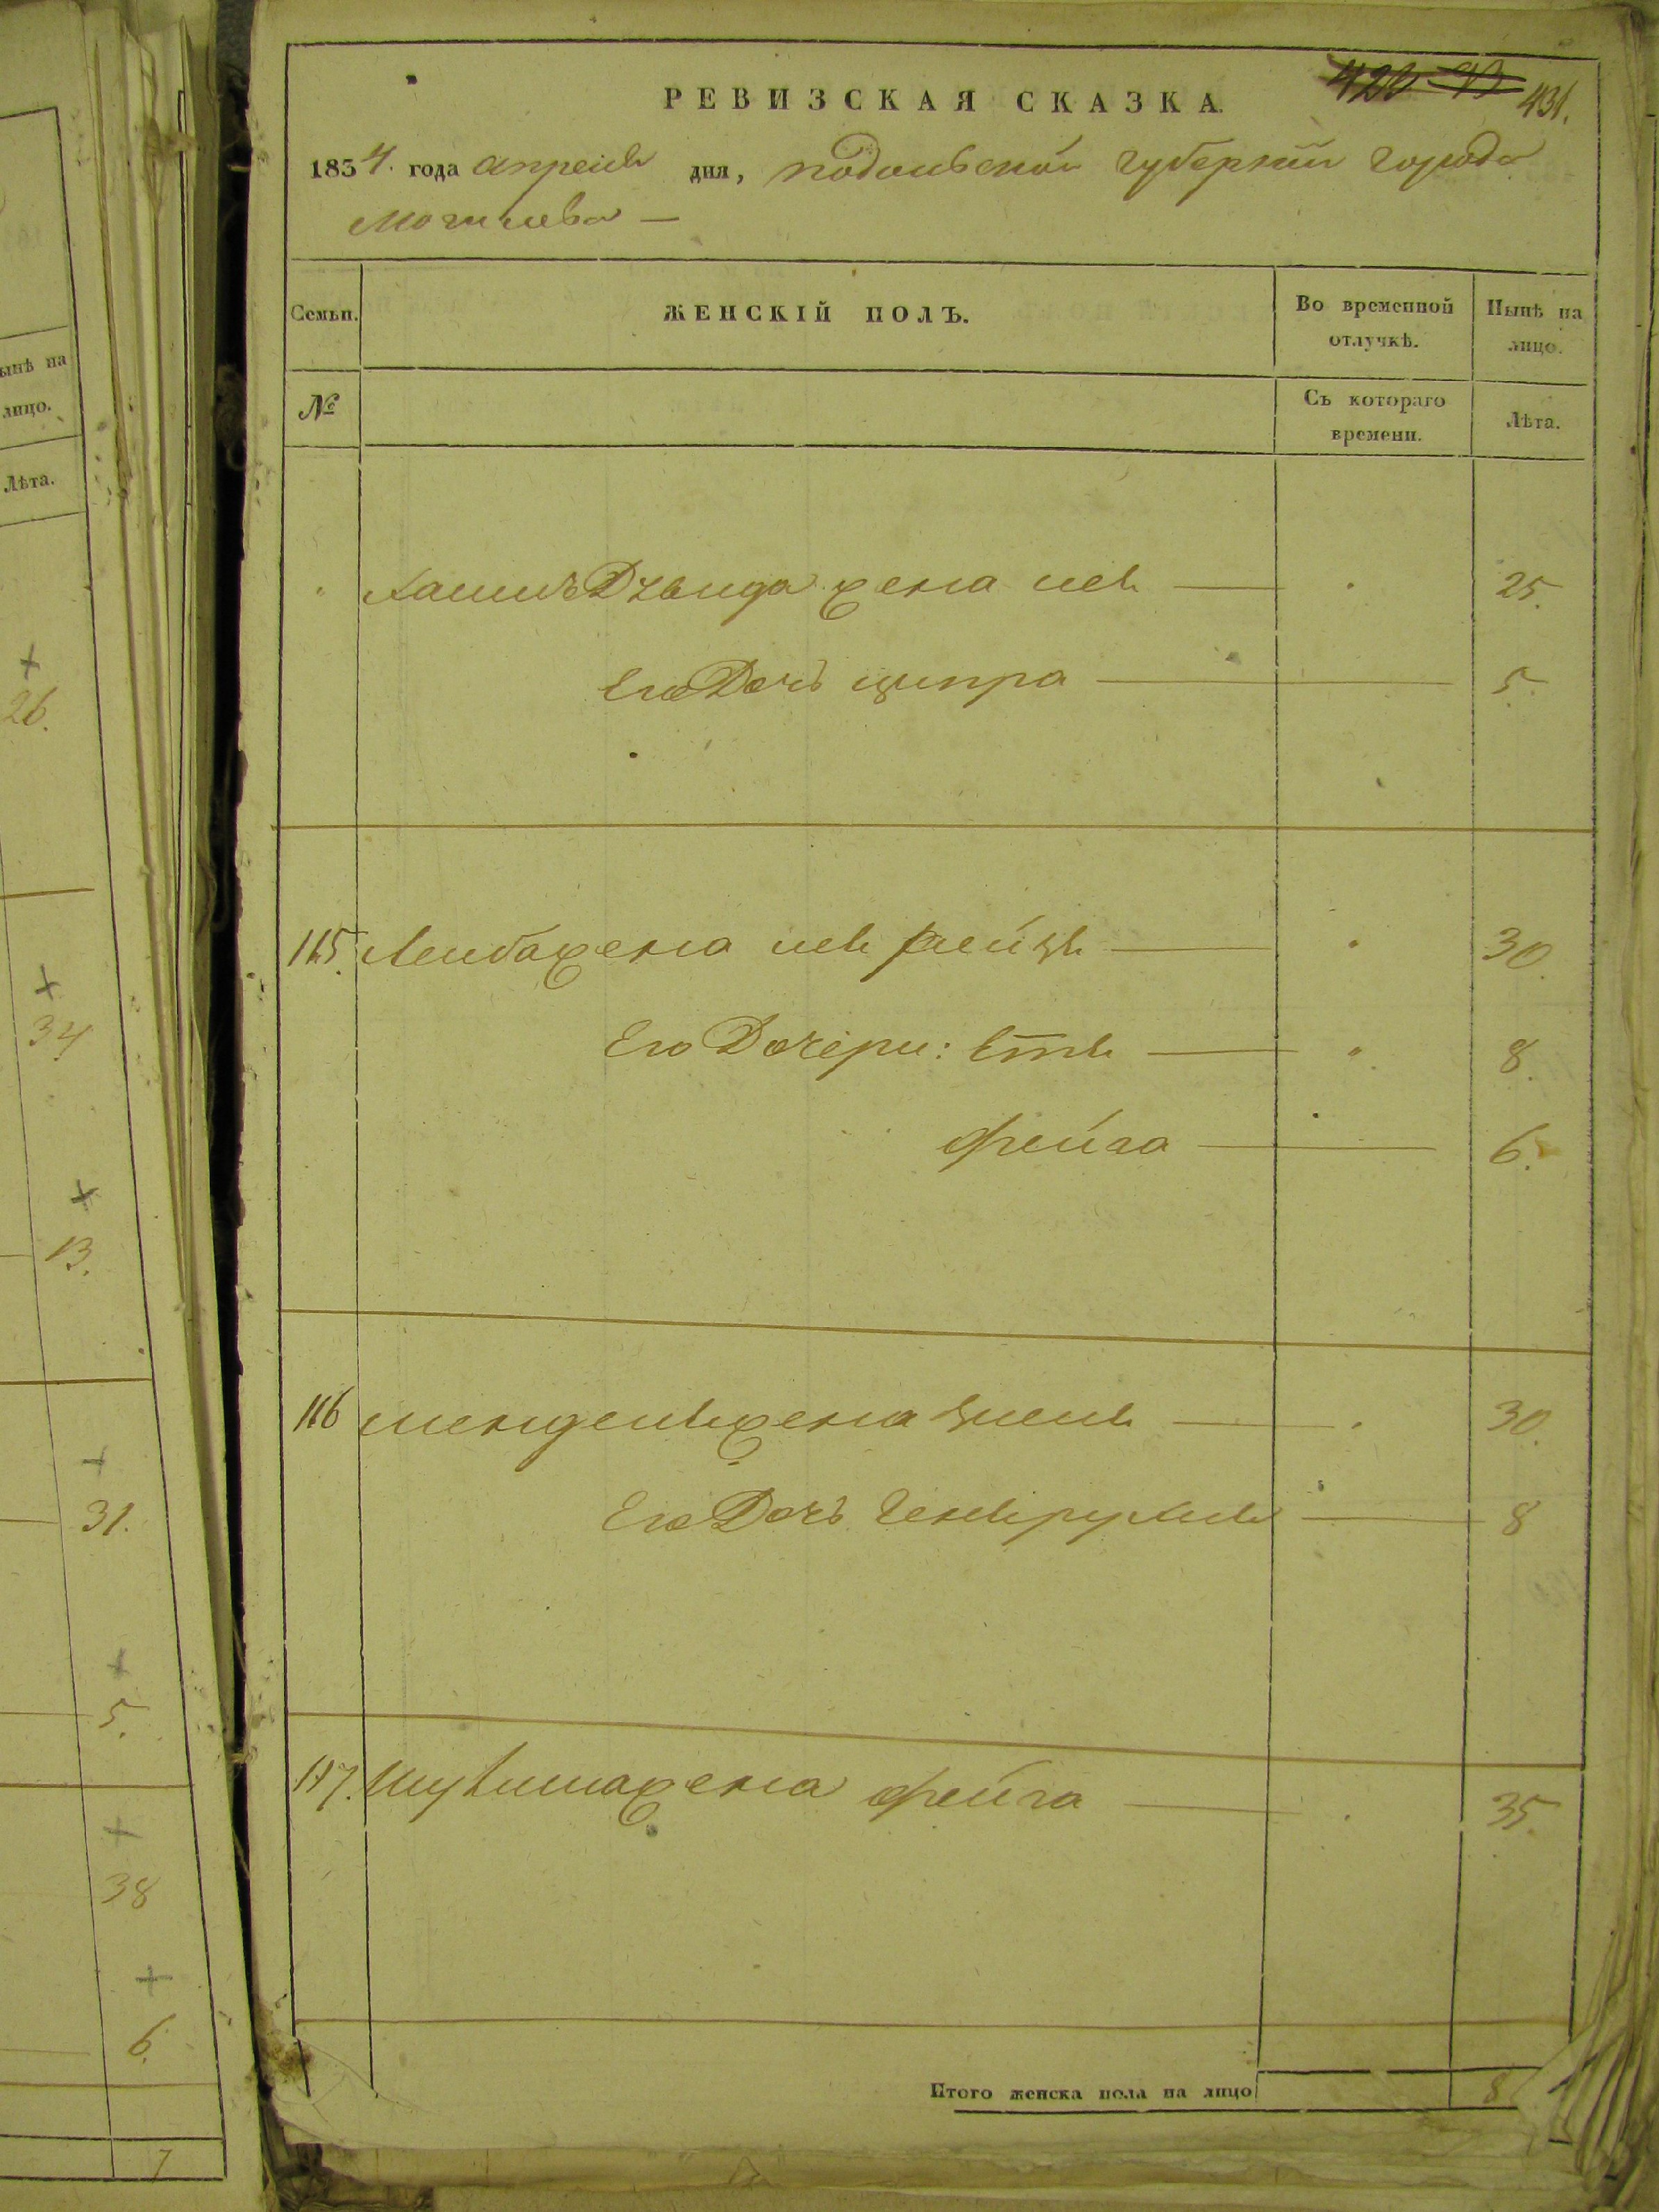 РЕВИЗСКАЯ СКАЗКА.
431.
1834. года апреля дня, подольской губернии города
Могилева —
Семьи. ЖЕНСКІЙ ПОЛЪ. Во временной отлучкѣ. Нынѣ на лицо.
№ Съ котораго времени. Лѣта.
жена лея 25.
Его Дочь ципра 5.
115. Лейбажена лея рейзя 30.
Его Дочери: Етя 8.
фейга 6.
116 менделяжена 30.
Его Дочь геня рухля 8
117. жена фейга 35.
Итого женска пола на лицо 8
ынѣ на
лицо.
Лѣта.
26.
34
13.
31.
5.
38
6.
7